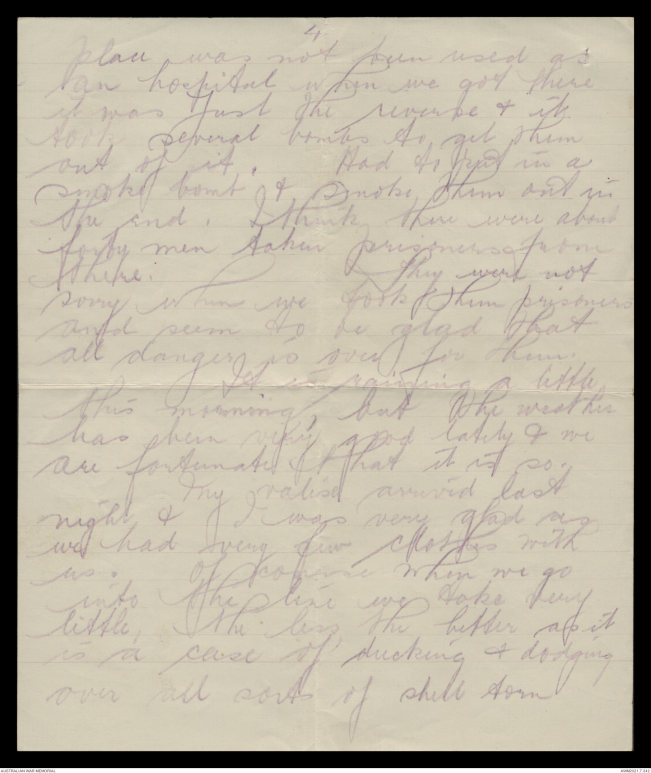 4
place was not been used as
an hospital when we got there
it was just the reverse & it
took several bombs to get them
out of it. Had to put in a
smoke bomb & smoke them out in
the end. I think there were about
forty men taken prisoners from
there. They were not
sorry when we took them prisoners
and seem to be glad that
all danger is over for them.
It is raining a little
this morning, but the weather
has been very good lately & we
are fortunate that it is so.
My valise arrived last
night & I was very glad as
we had very few clothes with
us. Of course when we go
into the line we take very
little, the less the better as it
is a case of ducking & dodging
over all sorts of shell torn
AUSTRALIAN WAR MEMORIAL